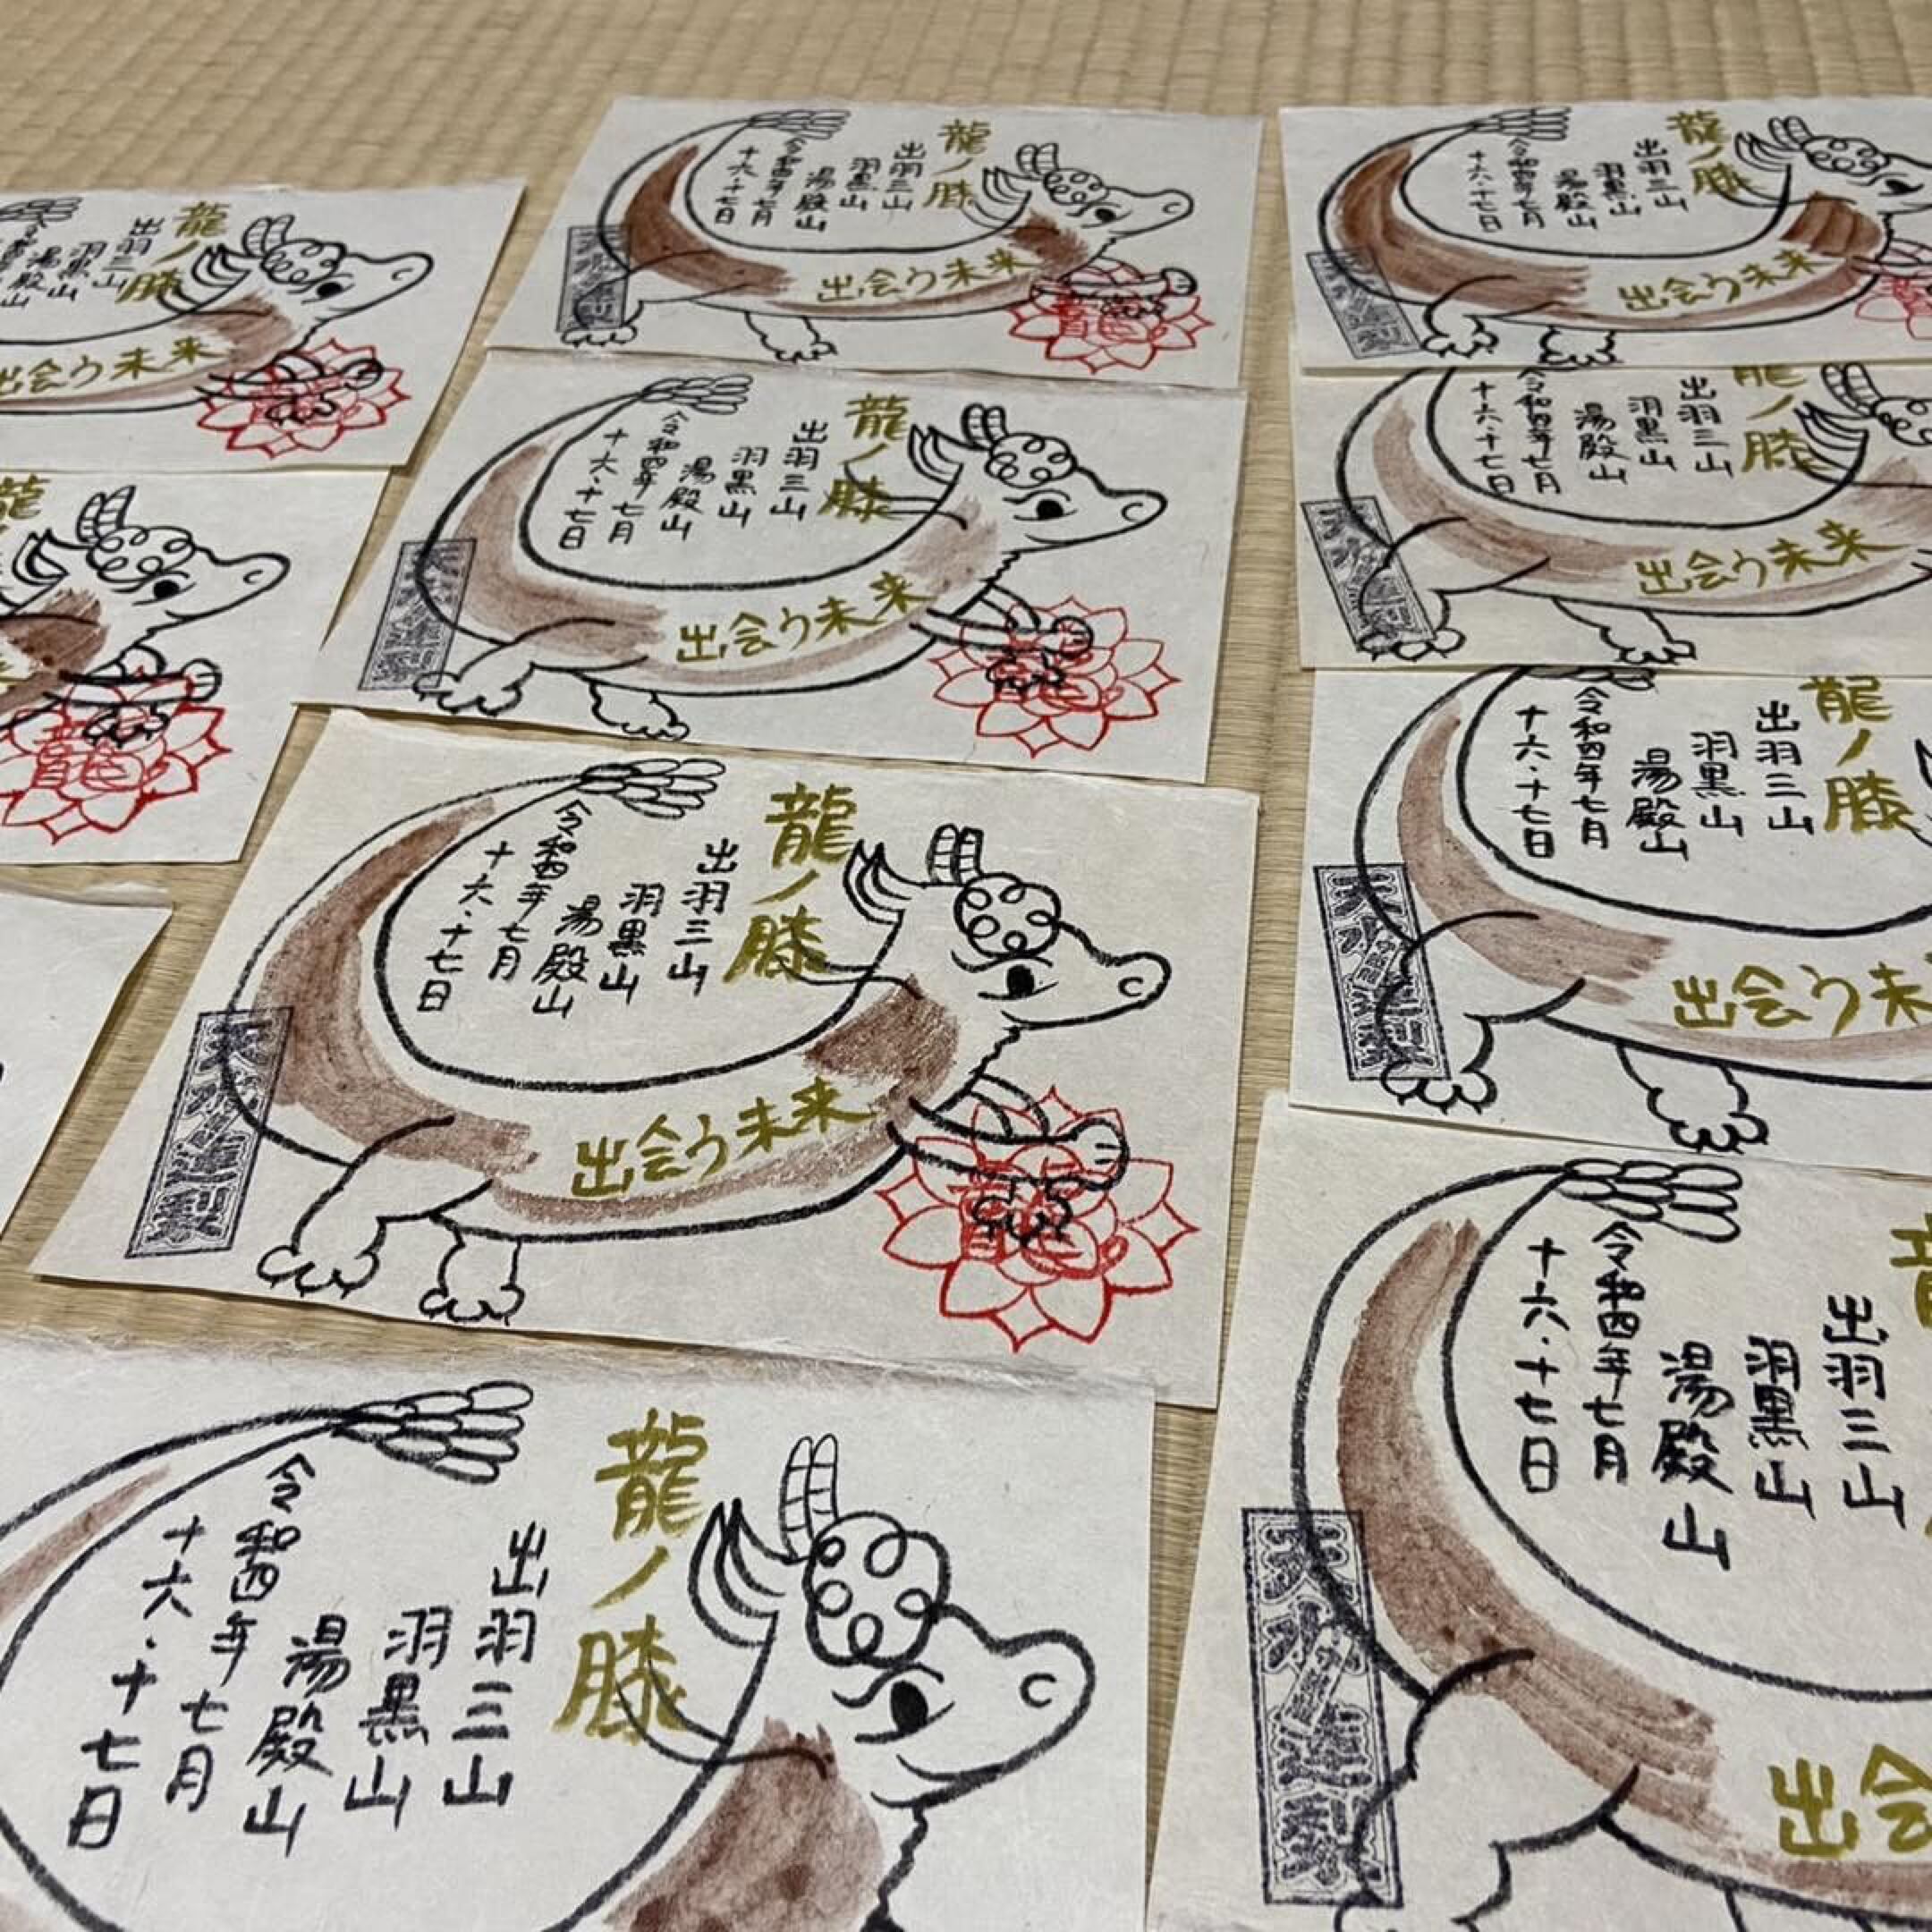 龍ノ膝
出羽三山
羽黒山
湯殿山
出会う未来
龍ノ膝
出羽三山
羽黒山
湯殿山
令和四年七月
十六・十七日
出会う未来
龍ノ膝
出羽三山
羽黒山
湯殿山
令和四年七月
十六・十七日
出会う未来
龍
龍ノ膝
出羽三山
羽黒山
湯殿山
令和四年七月
十六・十七日
出会う未来
龍ノ膝
出羽三山
羽黒山
湯殿山
令和四年七月
十六・十七日
出会う未来
龍ノ膝
出羽三山
羽黒山
湯殿山
令和四年七月
十六・十七日
出会う未来
龍ノ膝
出羽三山
羽黒山
湯殿山
令和四年七月
十六・十七日
出会う未
龍ノ膝
出羽三山
羽黒山
湯殿山
令和四年七月
十六・十七日
出羽三山
羽黒山
湯殿山
令和四年七月
十六・十七日
出会